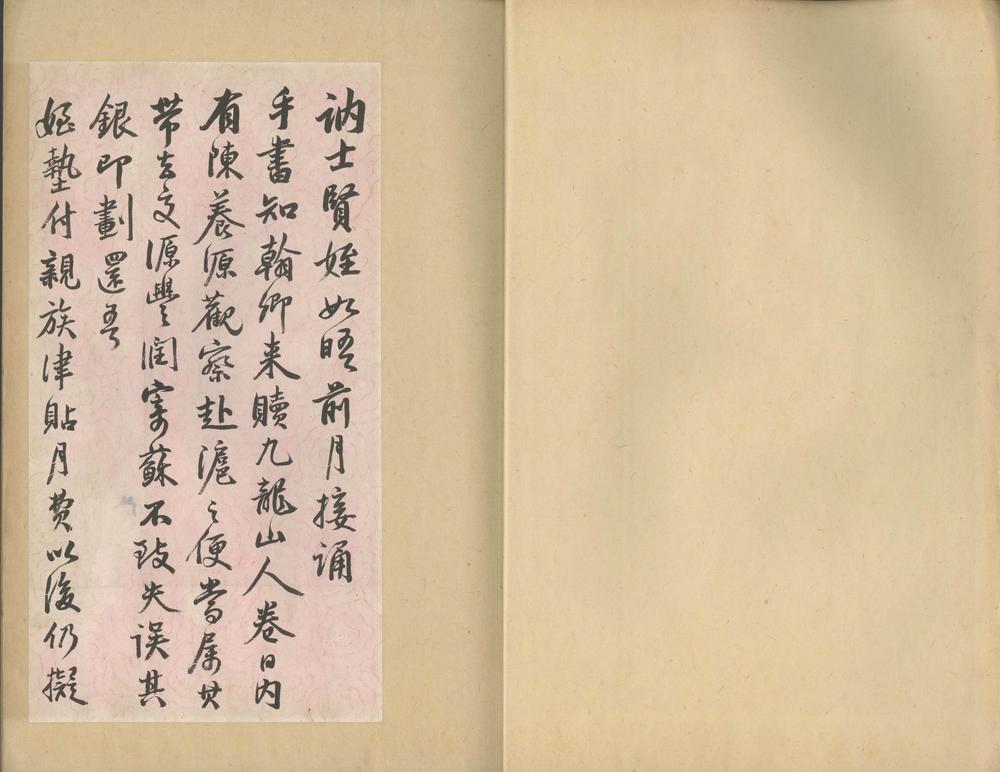 訥士賢姪如晤前月接誦
手書知翰卿来贖九龍山人卷日内
有陳養源觀察赴滬之便當属其
带去交源豐潤寄蘇不致失误其
銀即劃還吾
姪墊付親族津貼月費以後仍擬